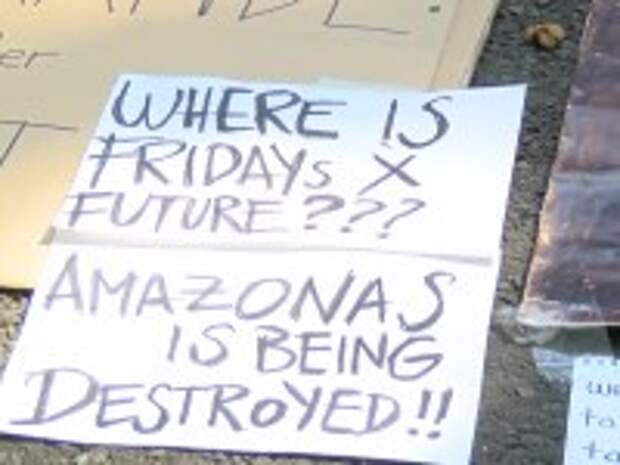 er
WHERE IS
FRIDAYs X
FUTURE???
AMAZONAS
IS BEING
DESTROYED!!
we